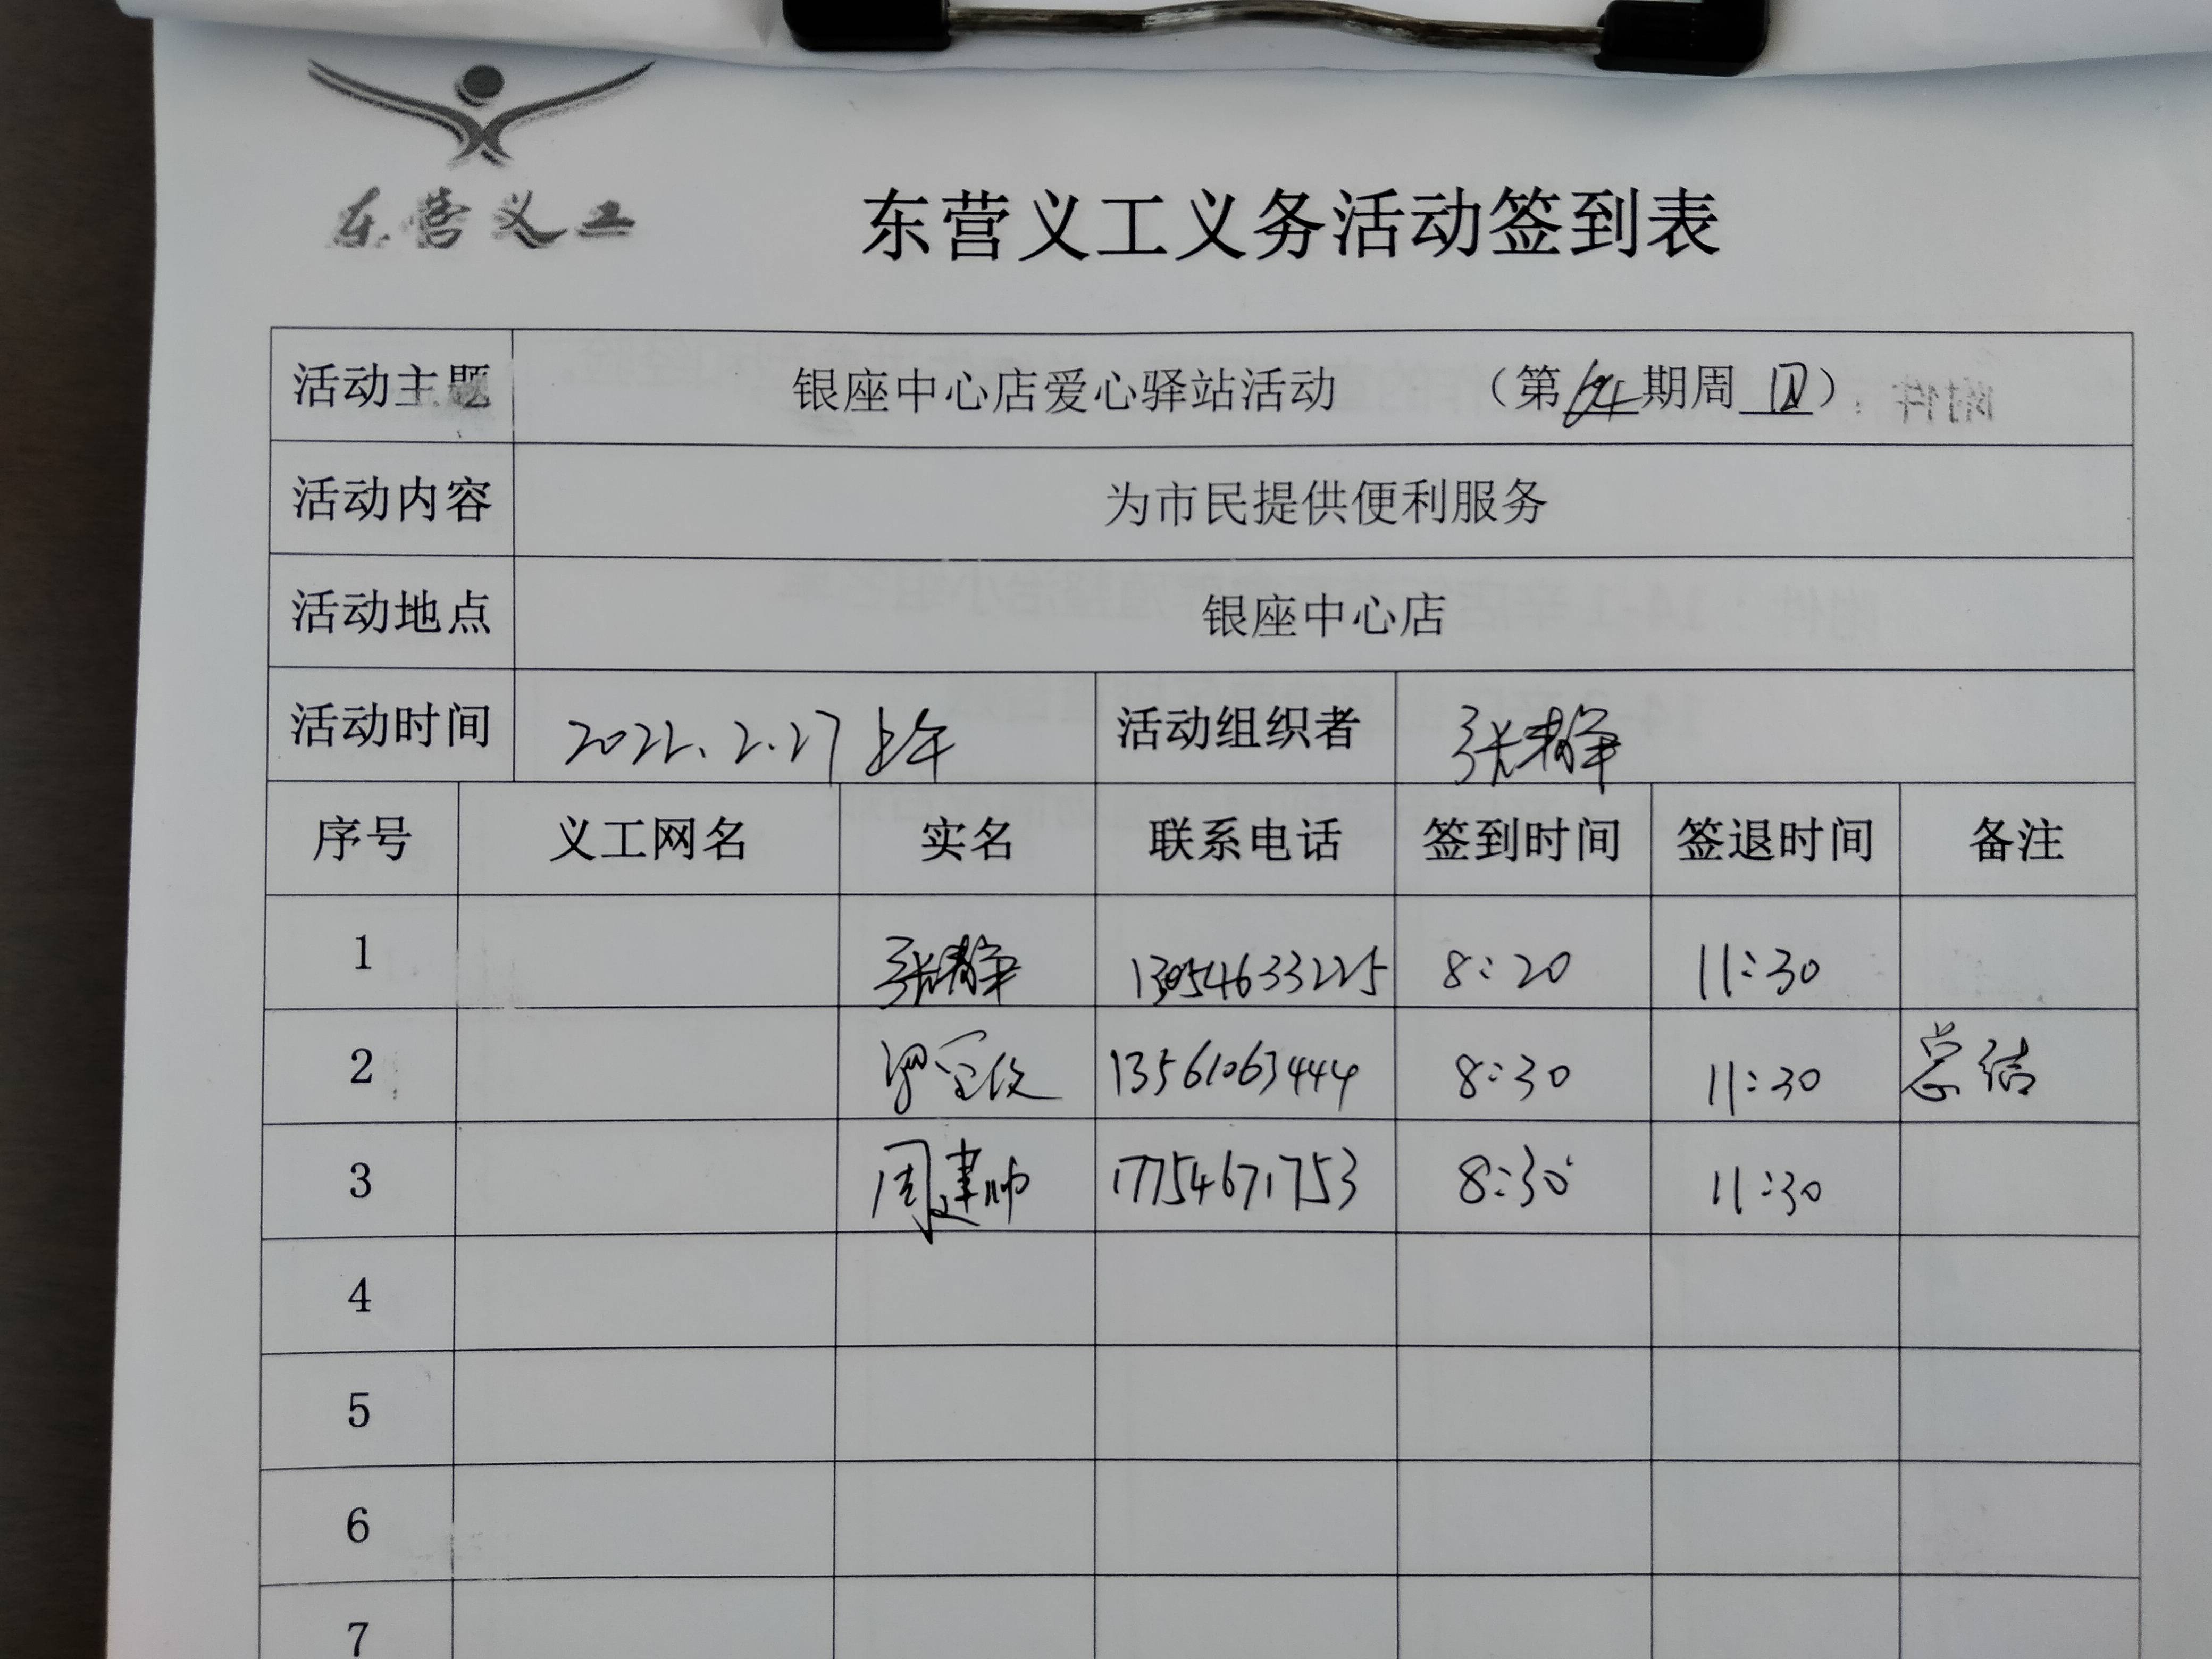 东营义工
东营义工义务活动签到表
活动主题 银座中心店爱心驿站活动 （第 期周四）
活动内容 为市民提供便利服务
活动地点 银座中心店
活动时间 2022.2.27上午 活动组织者 张静
序号 义工网名 实名 联系电话 签到时间 签退时间 备注
1 张静 13054633225 8:20 11:30
2 13561063444 8:30 11:30 总结
3 周建帅 17754671753 8:30 11:30
4
5
6
7